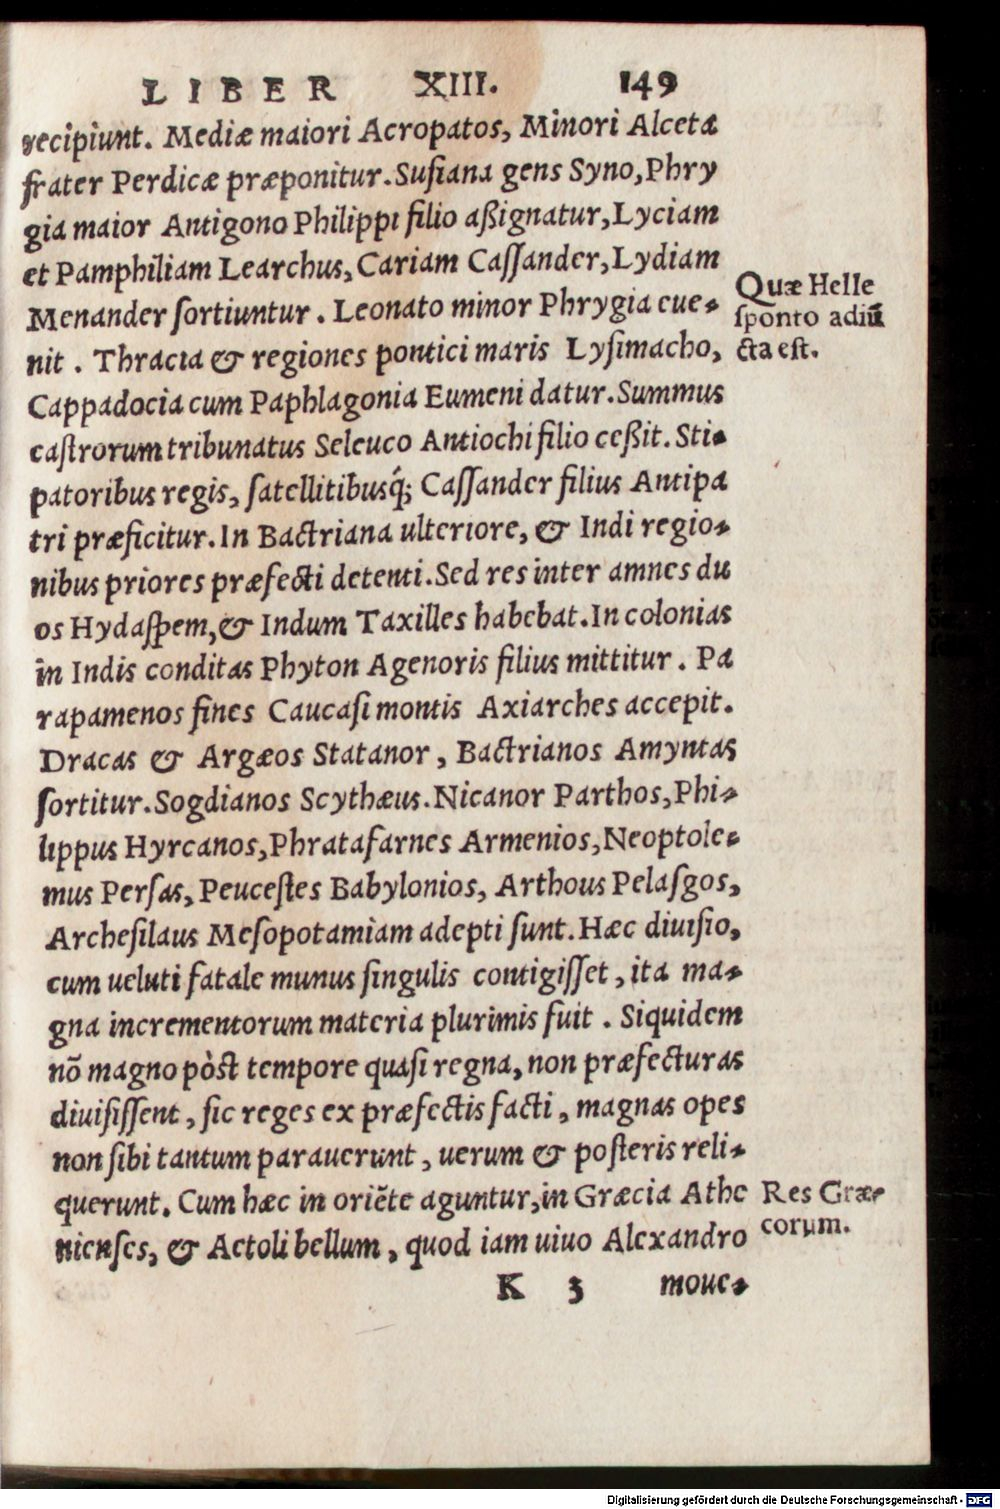 LIBER XIII. 149
recipiunt. Mediæ maiori Acropatos, Minori Alcetæ
frater Perdicæ præponitur. Susiana gens Syno, Phry
gia maior Antigono Philippi filio aßignatur, Lyciam
et Pamphiliam Learchus, Cariam Caſſander, Lydiam
Menander ſortiuntur. Leonato minor Phrygia eue-
nit. Thracia & regiones pontici maris Lyſimacho,
Cappadocia cum Paphlagonia Eumeni datur. Summus
caſtrorum tribunatus Seleuco Antiochi filio ceßit. Sti-
patoribus regis, ſatellitibusq́; Caſſander filius Antipa
tri præficitur. In Bactriana ulteriore, & Indi regio-
nibus priores præfecti detenti. Sed res inter amnes du
os Hydaſpem, & Indum Taxilles habebat. In colonias
in Indis conditas Phyton Agenoris filius mittitur. Pa
rapamenos fines Caucaſi montis Axiarches accepit.
Dracas & Argæos Statanor, Bactrianos Amyntas
ſortitur. Sogdianos Scythæus. Nicanor Parthos, Phi-
lippus Hyrcanos, Phratafarnes Armenios, Neoptole-
mus Perſas, Peuceſtes Babylonios, Arthous Pelaſgos,
Archeſilaus Meſopotamiam adepti ſunt. Hæc diuiſio,
cum ueluti fatale munus ſingulis contigiſſet, ita ma-
gna incrementorum materia plurimis fuit. Siquidem
nõ magno pòſt tempore quaſi regna, non præfecturas
diuiſiſſent, ſic reges ex præfectis facti, magnas opes
non ſibi tantum parauerunt, uerum & poſteris reli-
querunt. Cum hæc in oriẽte aguntur, in Græcia Athe
nienſes, & Aetoli bellum, quod iam uiuo Alexandro
K 3 moue-
Quæ Helle
ſponto adiũ
cta eſt.
Res Græ-
corum.
Digitalisierung gefördert durch die Deutsche Forschungsgemeinschaft - DFG